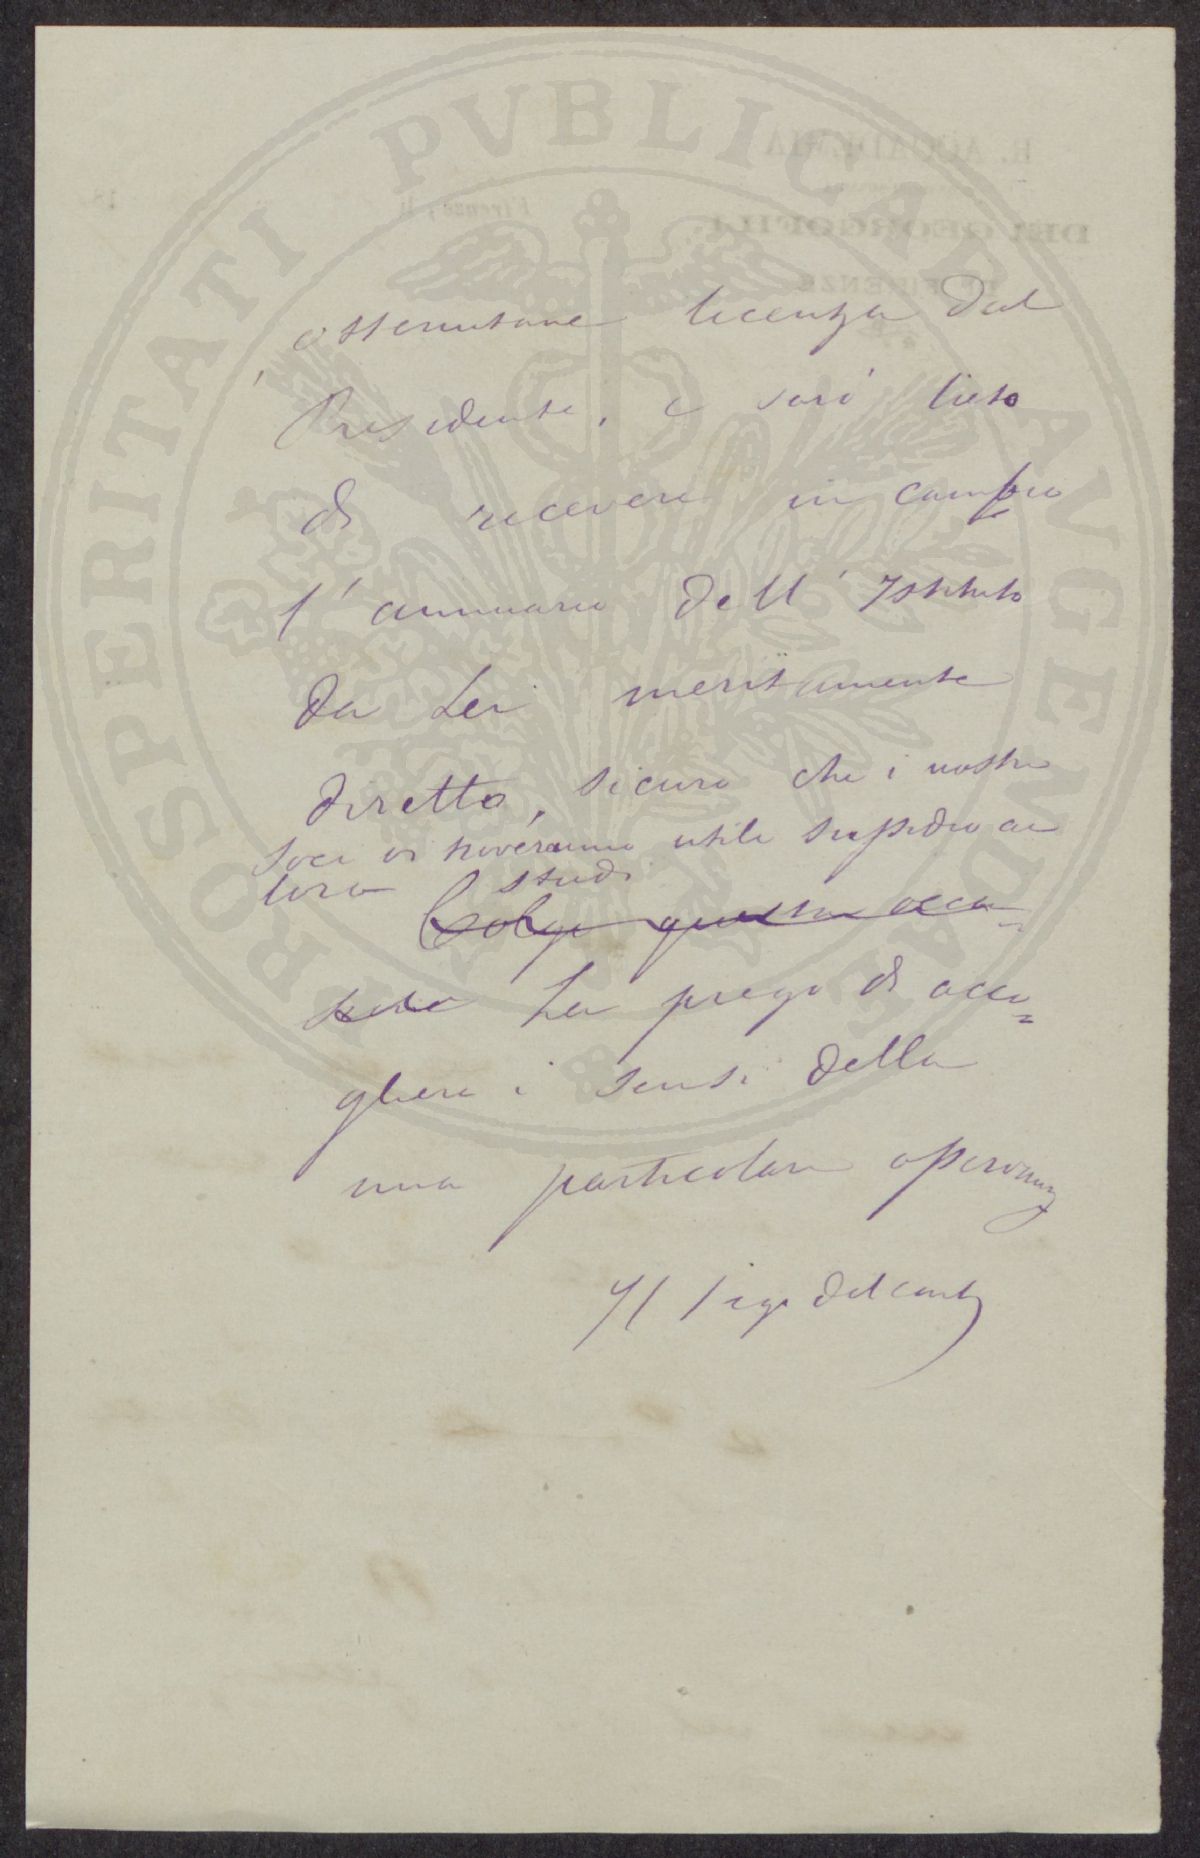 PROSPERITATI PVBLICAE AVGENDAE
R. ACCADEMIA
DEI GEORGOFILI
DI FIRENZE
Firenze, li 18
ottenutane licenza dal
Presidente, e sarò lieto
di ricevere in cambio
l'annuario dell'Istituto
da Lei meritamente
diretto, sicuro che i nostri
soci vi troveranno utile sussidio ai
loro studi
Colgo questa occa=
sione La prego di acco=
gliere i sensi della
mia particolare osservanza
Il Segr. del cart